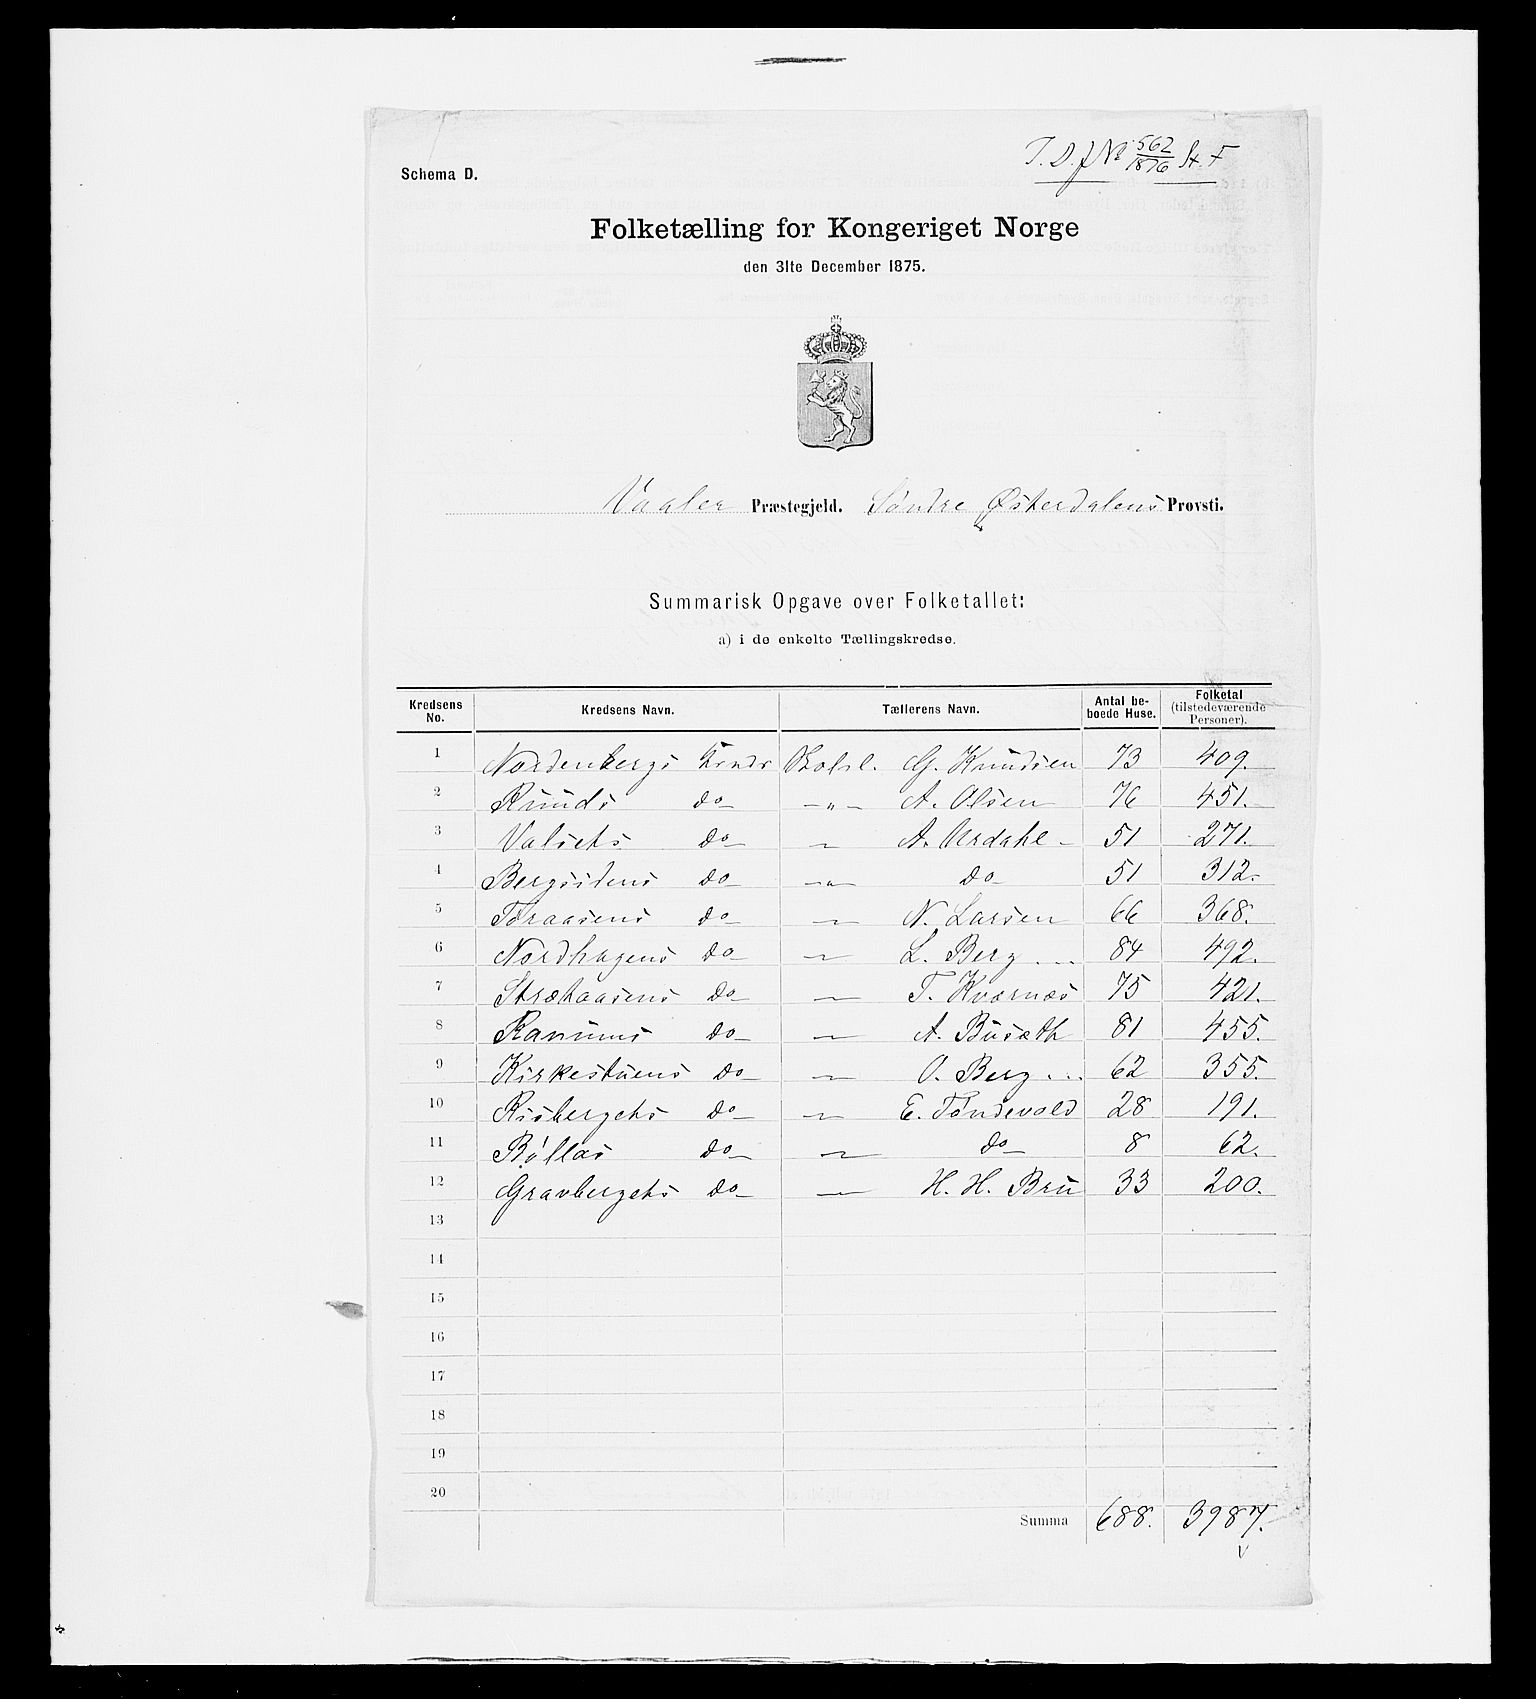 T. D. J No 562/1876 St. F
Schema D.
Folketælling for Kongeriget Norge
den 31te December 1875.
Vaaler Præstegjeld. Søndre Østerdalens Provsti.
Summarisk Opgave over Folketallet:
a) i de enkelte Tællingskredse.
Kredsens No. Kredsens Navn. Tællerens Navn. Antal beboede Huse. Folketal (tilstedeværende Personer).
1 Nordenbergs Kreds Skolel. G. Knudsen 73 409.
2 Ruuds do — „ — A. Olsen 76 451.
3 Valsets do — A. Urdahl 51 271.
4 Bergsidens do — „ — do 51 312.
5 Toraasens do — N. Larsen 66 368.
6 Nordhagens do — L. Berg 84 492.
7 Strætaasens do — T. Kværnæs 75 421.
8 Ranums do — A. Busæth 81 455.
9 Kirkestuens do — O. Berg 62 355.
10 Risbergets do — E. Tøndevold 28 191.
11 Bøllas do — do 8 62.
12 Gravbergets do — H. H. Bru 33 200.
13
14
15
16
17
18
19
20
Summa 688. 3987.